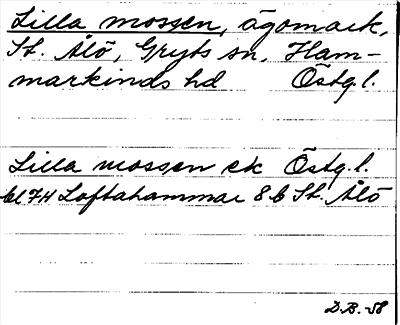 Lilla mossen, ägomark,
St. Ålö, Gryts sn, Ham-
markinds hd Östg.l.
Lilla mossen ek Östg.l.
bl 7H Loftahammar 8 b St. Ålö
D.B. -58